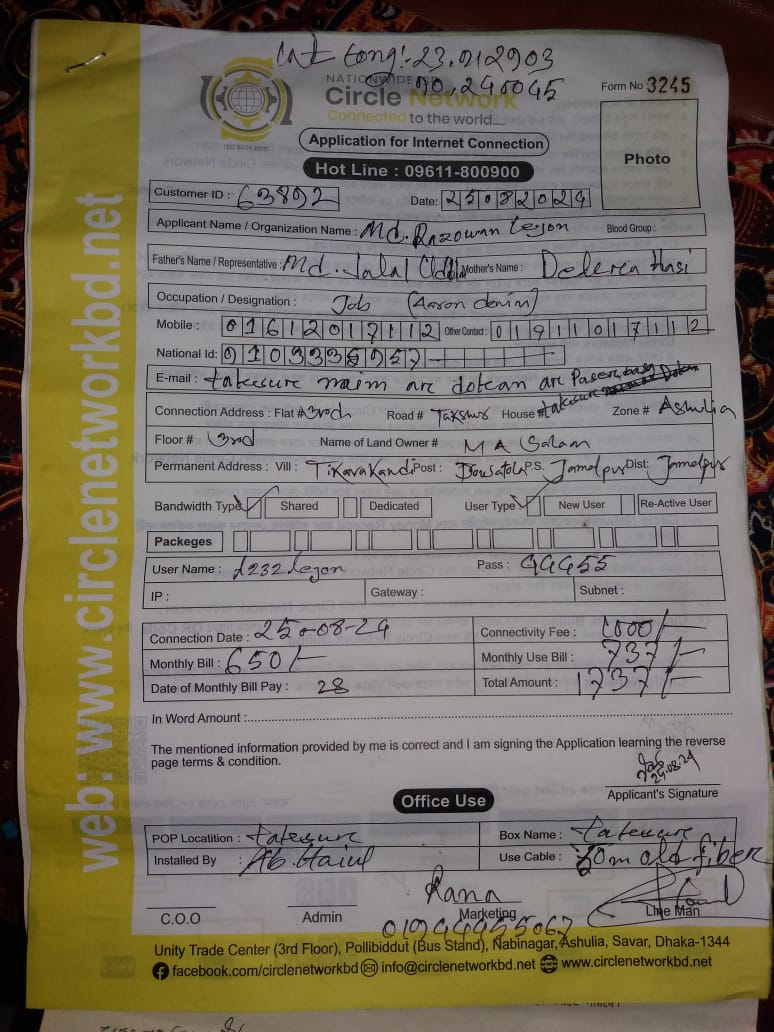 Lat Long:- 23.912903
90.240045
NATIONWIDE ISP
Form No 3245
Circle Network
Connected to the world.....
Application for Internet Connection
Photo
Hot Line : 09611-800900
Customer ID : 63892 Date: 25082024
Applicant Name / Organization Name : Md. Razowan Lejon Blood Group :
Father's Name / Representative : Md. Jalal Uddin Mother's Name :
Occupation / Designation : Job (Aaron denim)
Mobile : 01612017112 Other Contact : 01911017112
National Id:
E-mail :
Connection Address : Flat # Road # House # Zone # Ashulia
Floor # 3rd Name of Land Owner # M A Salam
Permanent Address : Vill : Tikarakandi Post : P.S. Jamalpur Dist: Jamalpur
Bandwidth Type Shared Dedicated User Type New User Re-Active User
Packeges
User Name : d232lejon Pass : 44455
IP : Gateway : Subnet :
Connection Date : 25-08-24 Connectivity Fee : 1000/-
Monthly Bill : 650/- Monthly Use Bill : 737/-
Date of Monthly Bill Pay : 28 Total Amount : 1737/-
In Word Amount :
The mentioned information provided by me is correct and I am signing the Application learning the reverse
page terms & condition.
25.08.24
Applicant's Signature
Office Use
POP Locatition : Box Name :
Installed By : Use Cable : old fiber
Rana
C.O.O Admin Marketing Line Man
01944455067
Unity Trade Center (3rd Floor), Pollibiddut (Bus Stand), Nabinagar, Ashulia, Savar, Dhaka-1344
facebook.com/circlenetworkbd info@circlenetworkbd.net www.circlenetworkbd.net
web: www.circlenetworkbd.net